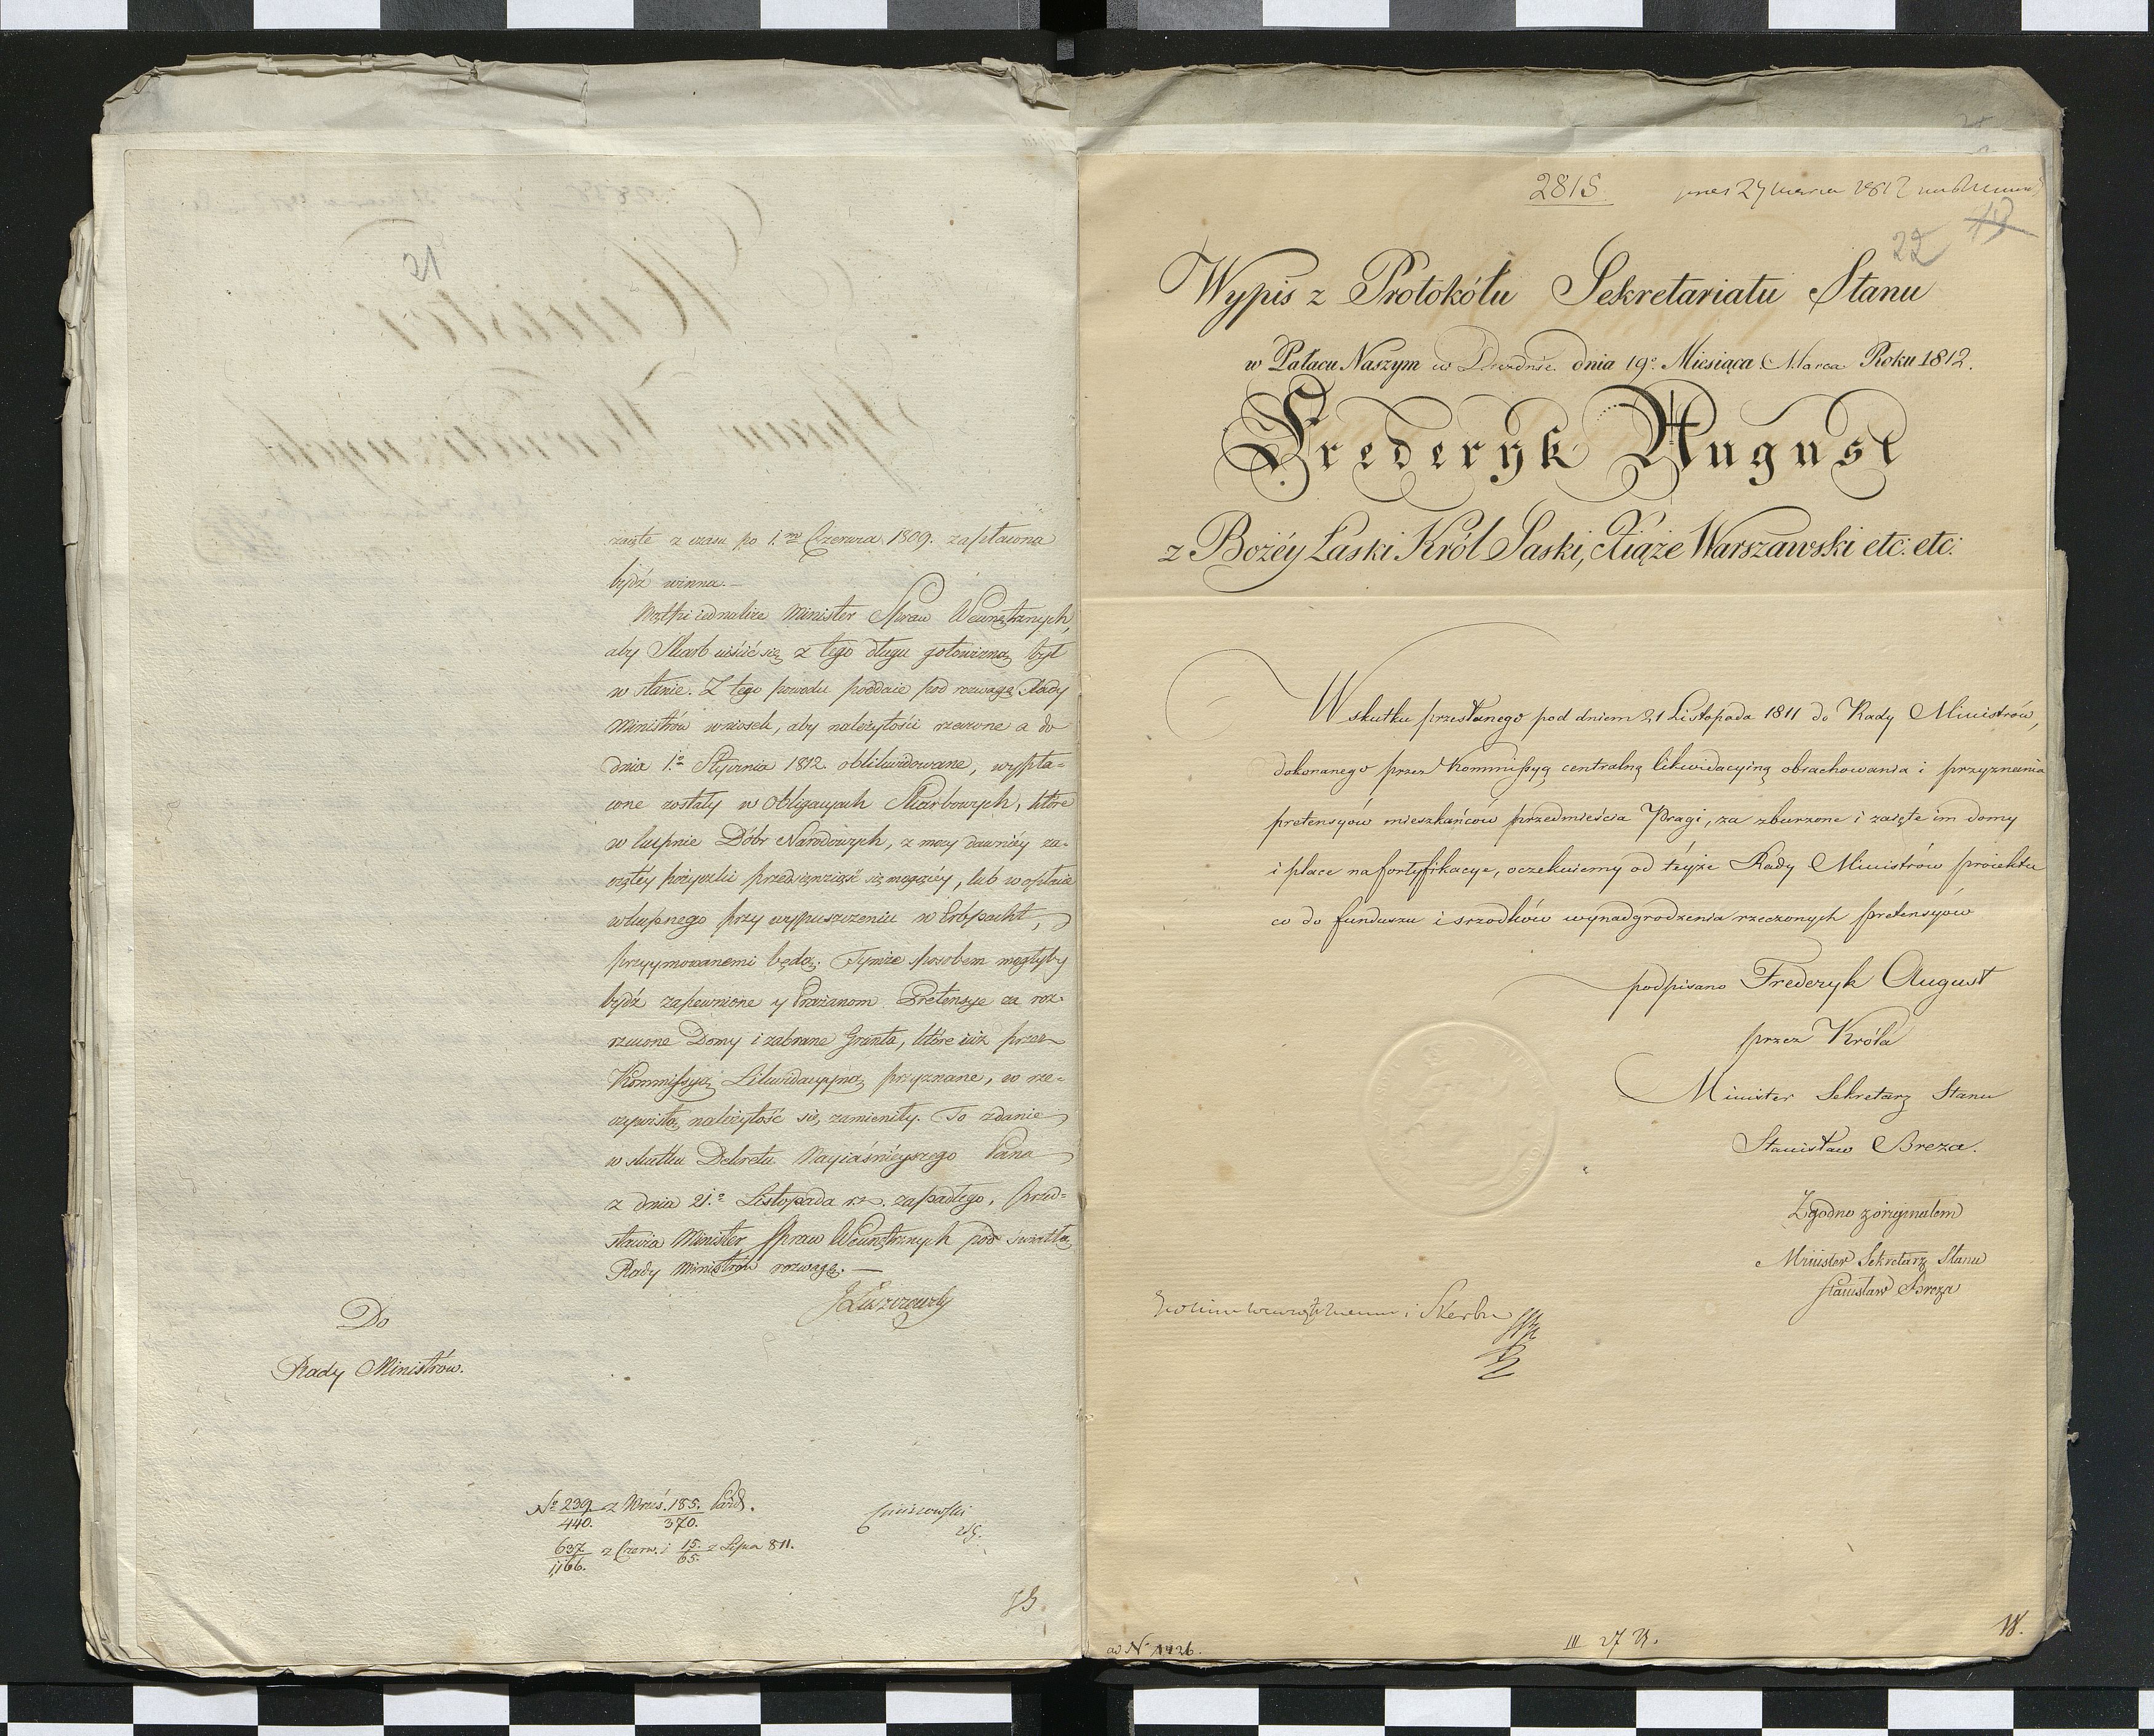 zaięte z czasu po 1.m Czerwca 1809. zapłacona
bydź winna.—
Wątpi iednakże Minister Spraw Wewnętrznych,
aby Skarb uiścić się z tego długu gotowizną był
w stanie. Z tego powodu poddaie pod rozwagę Rady
Ministrów wniosek, aby należytości rzeczone a do
dnia 1.o Stycznia 1812. oblikwidowane, wypła-
cone zostały w Obligacyach Skarbowych, które
w kupnie Dóbr Narodowych, z mocy dawniéy za-
ciętéy pożyczki przedsięwziąść się mogącéy, lub w opłacie
wkupnego przy wypuszczeniu w Erbpacht,
przyymowanemi będą. Tymże sposobem mogłyby
bydź zapewnione y Prażanom Pretensye za roz-
rzucone Domy i zabrane Grunta, które iuż przez
Kommissyą Likwidacyyną przyznane, w rze-
czywistą należytość się zamieniły. To zdanie
w skutku Dekretu Nayiaśnieyszego Pana
z dnia 21.o Listopada r.z. zapadłego, przed-
stawia Minister Spraw Wewnętrznych pod światłą
Rady Ministrów rozwagę.—
Do
Rady Ministrów.
No 239 z Wrześ. 185.
440. 370.
637 z Czerw. i 15. z Lipca 811.
1,166. 65.
2815.
22
19
Wypis z Protokółu Sekretariatu Stanu
w Pałacu Naszym w Dreźdnie dnia 19o. Miesiąca Marca Roku 1812.
Frederyk August
z Bożéy Łaski Król Saski, Xiąże Warszawski etc: etc:
W skutku przesłanego pod dniem 21 Listopada 1811 do Rady Ministrów,
dokonanego przez Kommissyą centralną likwidacyiną obrachowania i przyznania
pretensyów mieszkańców przedmieścia Pragi, za zburzone i zaięte im domy
i place na fortyfikacye, oczekuiemy od téyże Rady Ministrów proiektu
co do funduszu i srzodków wynadgrodzenia rzeczonych pretensyów
podpisano Frederyk August
przez Króla
Minister Sekretarz Stanu
Stanisław Breza.
Zgodno z oryginałem
Minister Sekretarz Stanu
Stanisław Breza
i Skarbu
ad No 1426.
III 27
18.